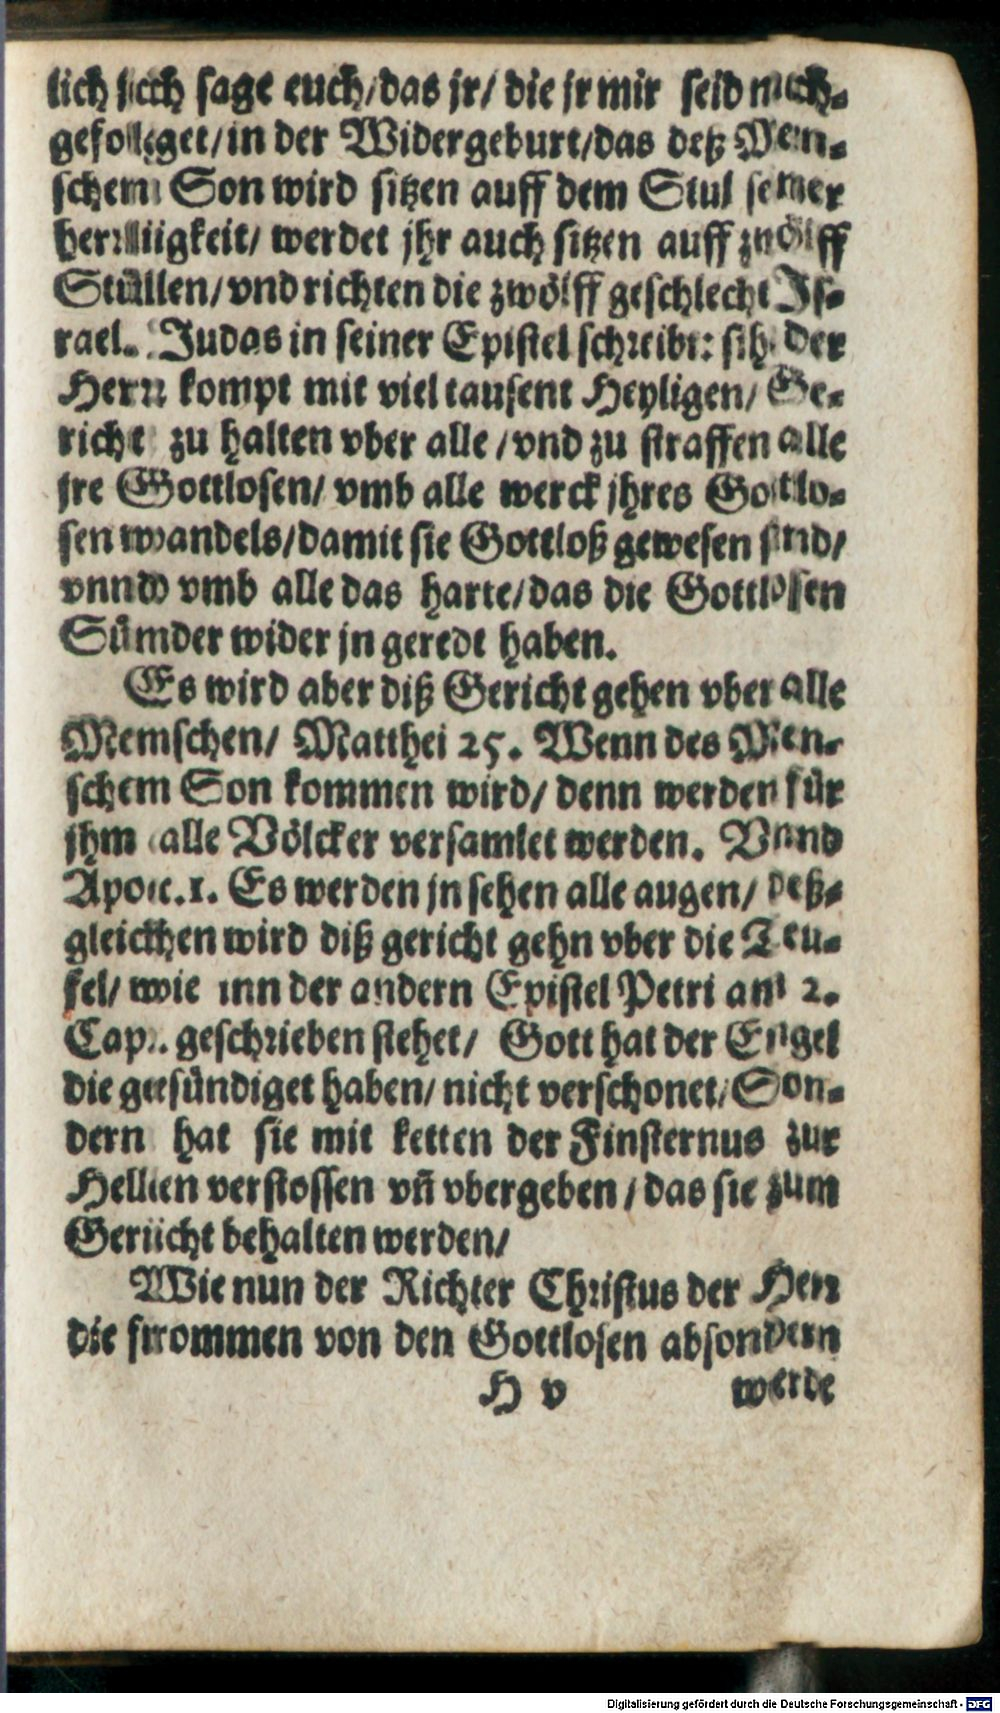 lich ich sage euch/das jr/ die jr mir seid nach-
gefolget/in der Widergeburt/das deß Men-
schen Son wird sitzen auff dem Stul seiner
herrligkeit/ werdet jhr auch sitzen auff zwölff
Stüllen/vnd richten die zwölff geschlecht Is-
rael. Judas in seiner Epistel schreibt: sihe der
Herr kompt mit viel tausent Heyligen/ Ge-
richt zu halten vber alle /vnd zu straffen alle
jre Gottlosen/ vmb alle werck jhres Gottlo-
sen wandels/damit sie Gottloß gewesen sind/
vnnd vmb alle das harte/das die Gottlosen
Sünder wider jn geredt haben.
Es wird aber diß Gericht gehen vber alle
Menschen/ Matthei 25. Wenn des Men-
schen Son kommen wird/ denn werden für
jhm alle Völcker versamlet werden. Vnnd
Apoc.1. Es werden jn sehen alle augen/ deß-
gleichen wird diß gericht gehn vber die Teu-
fel/ wie inn der andern Epistel Petri am 2.
Cap. geschrieben stehet/ Gott hat der Engel
die gesündiget haben/ nicht verschonet/Son-
dern hat sie mit ketten der Finsternus zur
Hellen verstossen vñ vbergeben /das sie zum
Gericht behalten werden/
Wie nun der Richter Christus der Herr
die frommen von den Gottlosen absondern
H v werde
Digitalisierung gefördert durch die Deutsche Forschungsgemeinschaft - DFG